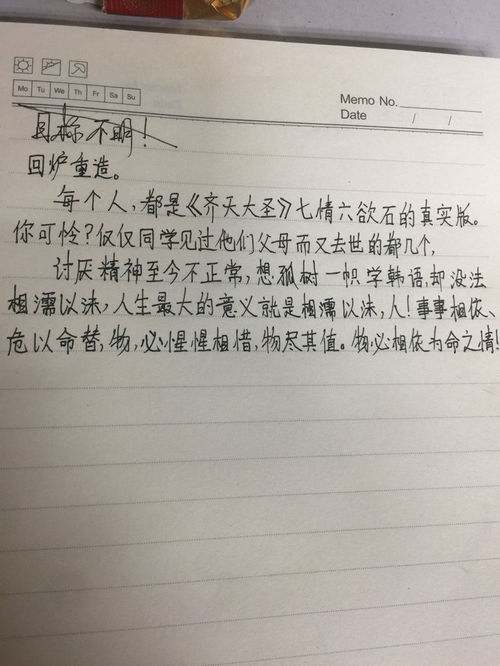 Mo Tu We Th Fr Sa Su
Memo No.
Date / /
目标不明！
回炉重造。
每个人，都是《齐天大圣》七情六欲石的真实版。
你可怜？仅仅同学见过他们父母而又去世的都几个，
讨厌精神至今不正常，想孤树一帜学韩语，却没法
相濡以沫，人生最大的意义就是相濡以沫，人！事事相依、
危以命替，物，必惺惺相惜，物尽其值。物必相依为命之情！